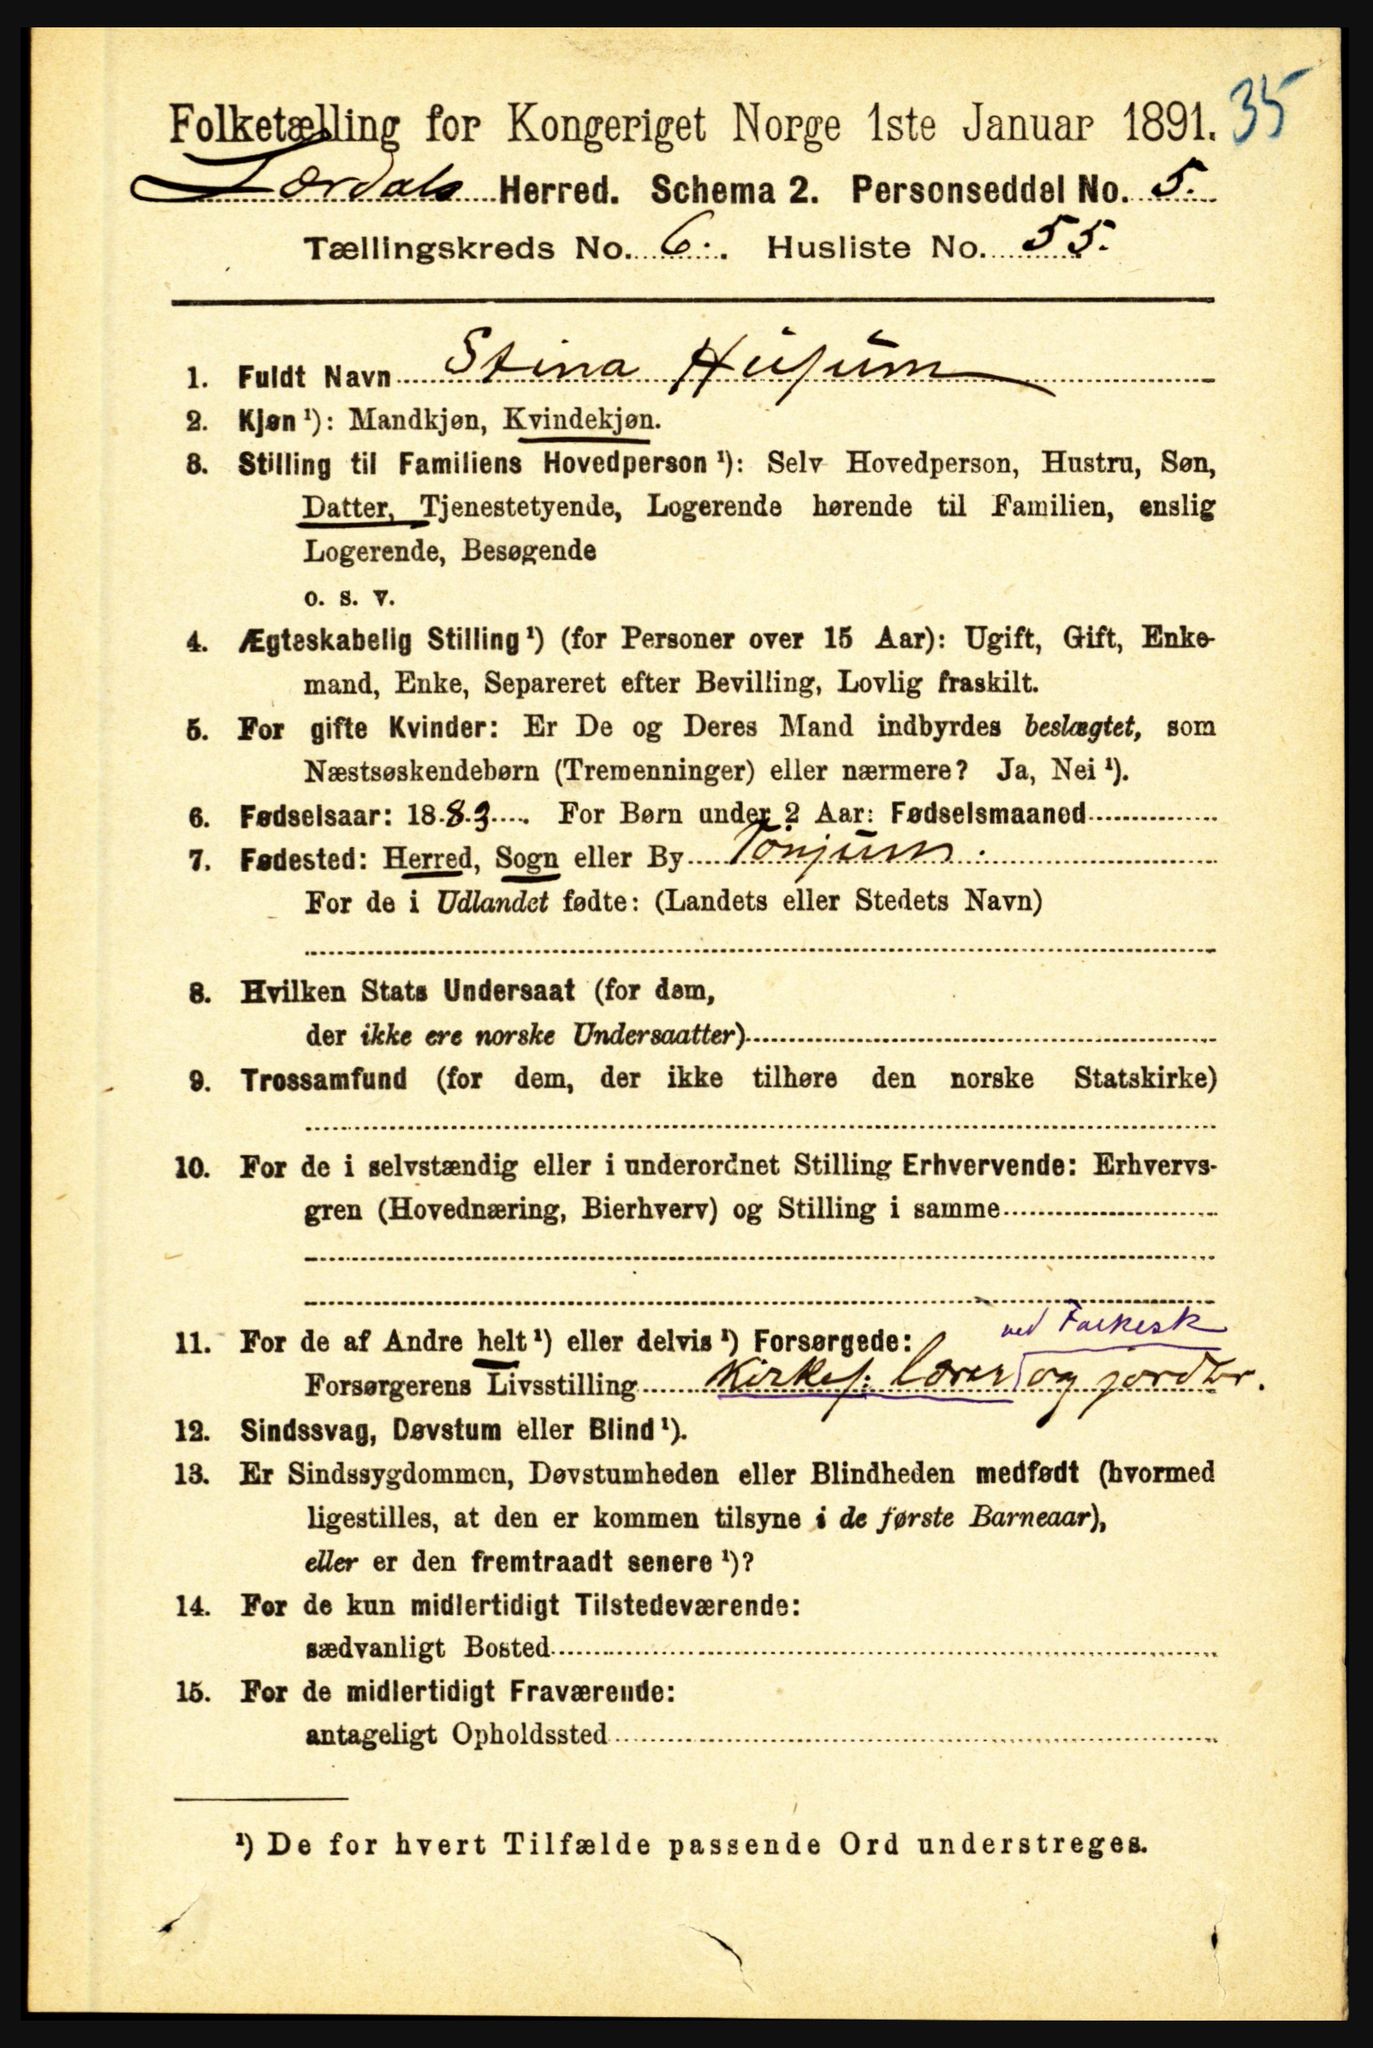 35
Folketælling for Kongeriget Norge 1ste Januar 1891.
Lærdals Herred. Schema 2. Personseddel No. 5.
Tællingskreds No. 6. Husliste No. 55.
1. Fuldt Navn Stina Husum
2. Kjøn ¹): Mandkjøn, Kvindekjøn.
3. Stilling til Familiens Hovedperson ¹): Selv Hovedperson, Hustru, Søn,
Datter, Tjenestetyende, Logerende hørende til Familien, enslig
Logerende, Besøgende
o. s. v.
4. Ægteskabelig Stilling ¹) (for Personer over 15 Aar): Ugift, Gift, Enke-
mand, Enke, Separeret efter Bevilling, Lovlig fraskilt.
5. For gifte Kvinder: Er De og Deres Mand indbyrdes beslægtet, som
Næstsøskendebørn (Tremenninger) eller nærmere? Ja, Nei ¹).
6. Fødselsaar: 1883. For Børn under 2 Aar: Fødselsmaaned
7. Fødested: Herred, Sogn eller By Tønjum.
For de i Udlandet fødte: (Landets eller Stedets Navn)
8. Hvilken Stats Undersaat (for dem,
der ikke ere norske Undersaatter)
9. Trossamfund (for dem, der ikke tilhøre den norske Statskirke)
10. For de i selvstændig eller i underordnet Stilling Erhvervende: Erhvervs-
gren (Hovednæring, Bierhverv) og Stilling i samme
ved Folkesk
11. For de af Andre helt ¹) eller delvis ¹) Forsørgede:
Forsørgerens Livsstilling Kirkes. lærer og jordbr.
12. Sindssvag, Døvstum eller Blind ¹).
13. Er Sindssygdommen, Døvstumheden eller Blindheden medfødt (hvormed
ligestilles, at den er kommen tilsyne i de første Barneaar),
eller er den fremtraadt senere ¹)?
14. For de kun midlertidigt Tilstedeværende:
sædvanligt Bosted
15. For de midlertidigt Fraværende:
antageligt Opholdssted
¹) De for hvert Tilfælde passende Ord understreges.